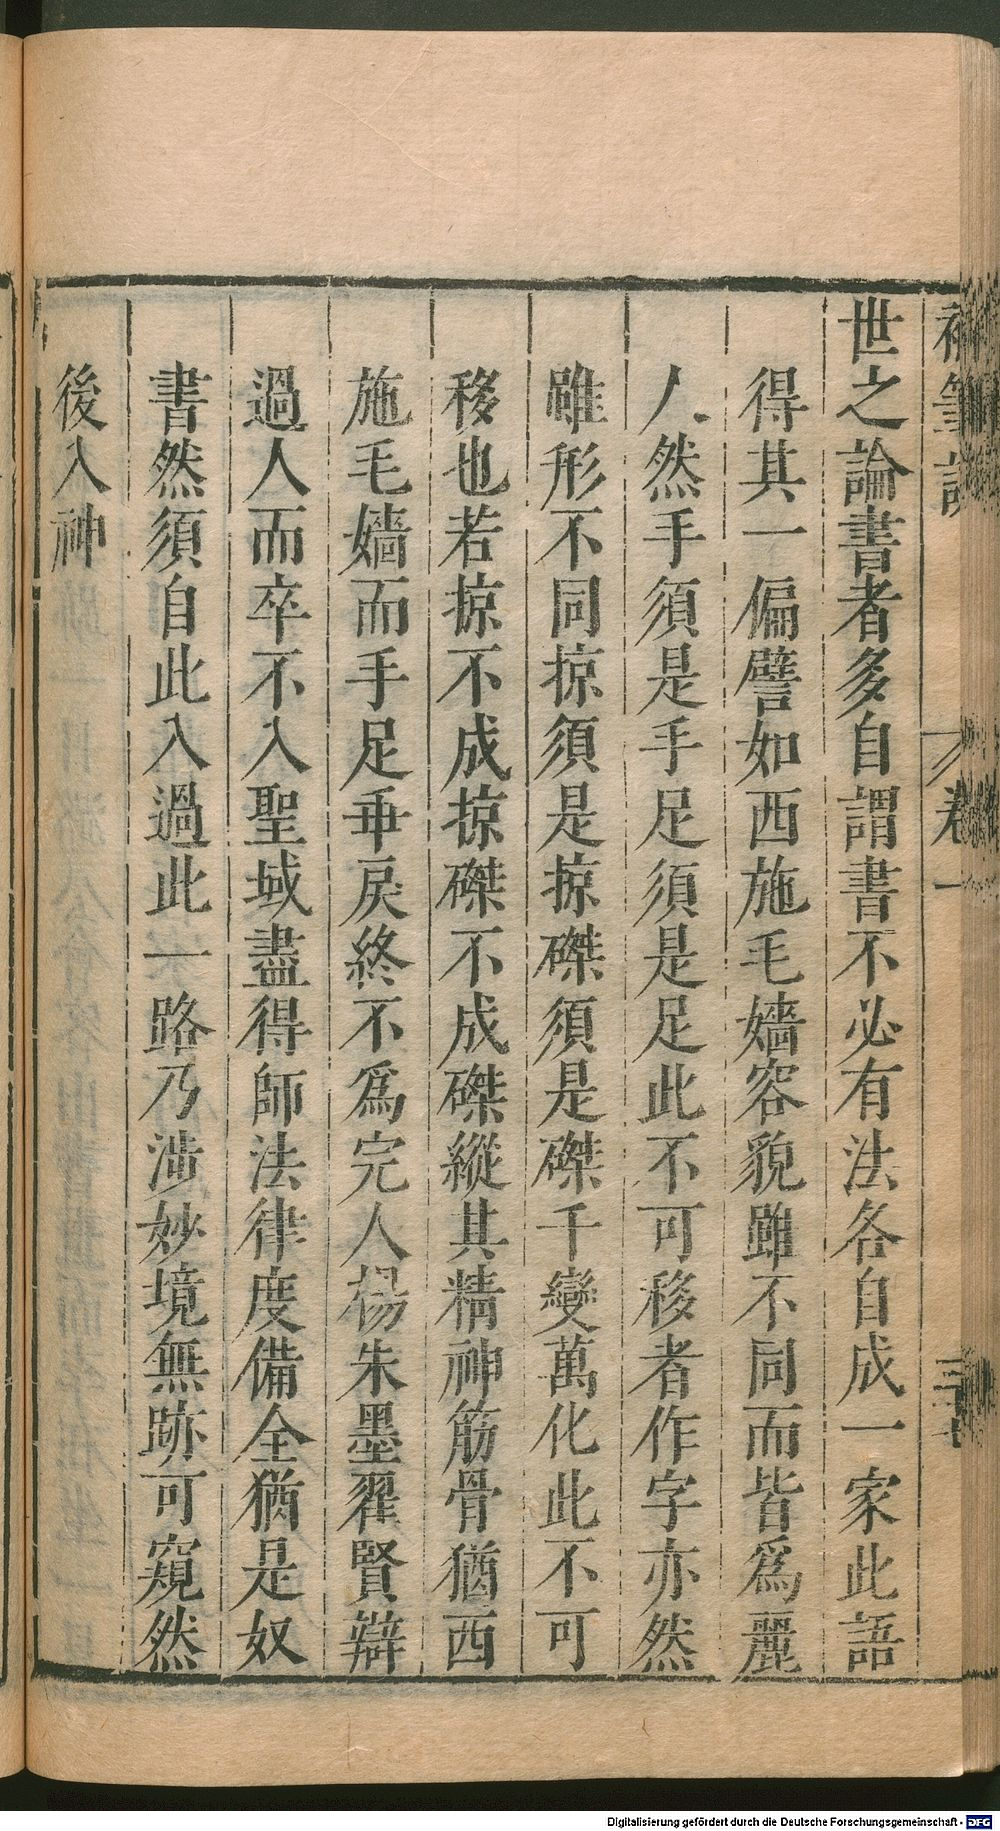 補筆談
卷一
世之論書者多自謂書不必有法各自成一家此語
得其一偏譬如西施毛嬙容貌雖不同而皆爲麗
人然手須是手足須是足此不可移者作字亦然
雖形不同掠須是掠磔須是磔千變萬化此不可
移也若掠不成掠磔不成磔縱其精神筋骨猶西
施毛嬙而手足乖戾終不爲完人楊朱墨翟賢辯
過人而卒不入聖域盡得師法律度備全猶是奴
書然須自此入過此一路乃涉妙境無跡可窺然
後入神
Digitalisierung gefördert durch die Deutsche Forschungsgemeinschaft - DFG